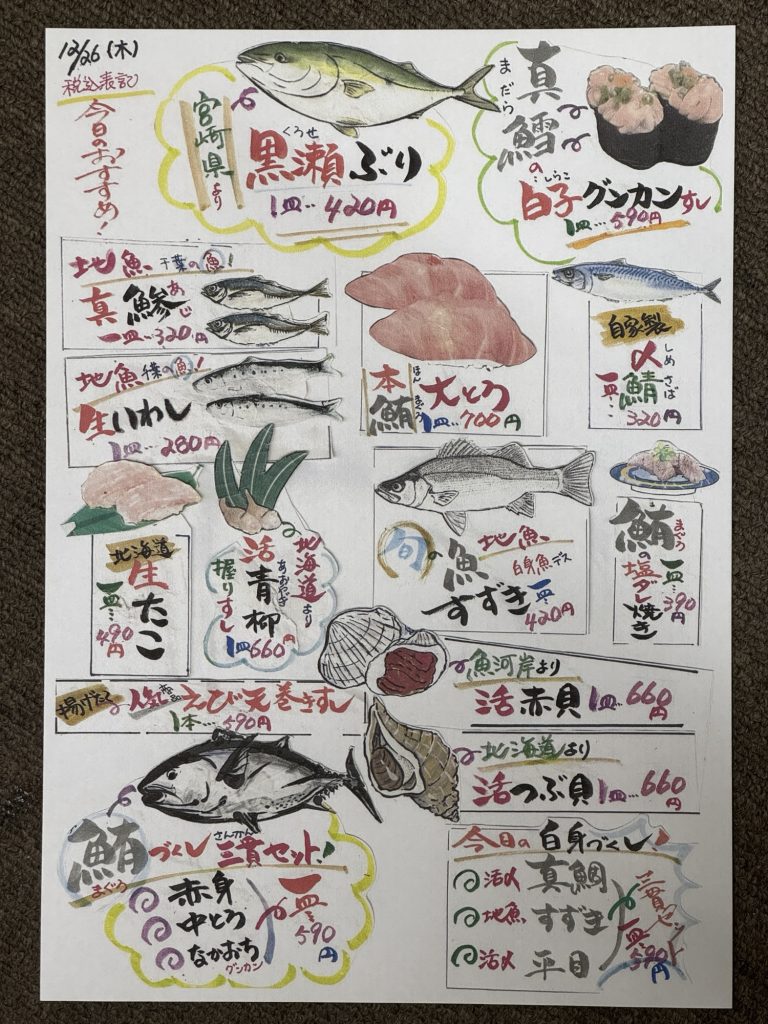 12/26(木)
税込表記
今日のおすすめ!
宮崎県より
くろせ
黒瀬ぶり
1皿…420円
まだら
真鱈の
しらこ
白子グンカンすし
1皿…590円
地魚 千葉の魚!
あじ
真鯵
一皿…320円
地魚 千葉の魚!
生いわし
1皿…280円
ほんまぐろ
本鮪
大とろ
1皿…700円
自家製
しめさば
〆鯖
一皿…320円
北海道
生たこ
一皿…490円
北海道より
活青柳
あおやぎ
握りすし
1皿660円
旬の魚
地魚
白身魚デス
すずき
一皿420円
まぐろ
鮪の塩ダレ焼き
一皿…390円
揚げたて
人気商品
えび天巻きすし
1本…590円
魚河岸より
活赤貝 1皿…660円
北海道より
活つぶ貝 1皿…660円
鮪づくし
まぐろ
さんかん
三貫セット!
赤身
中とろ
なかおち
グンカン
一皿…590円
今日の白身づくし!
活〆 真鯛
地魚 すずき
活〆 平目
三貫セット
一皿590円